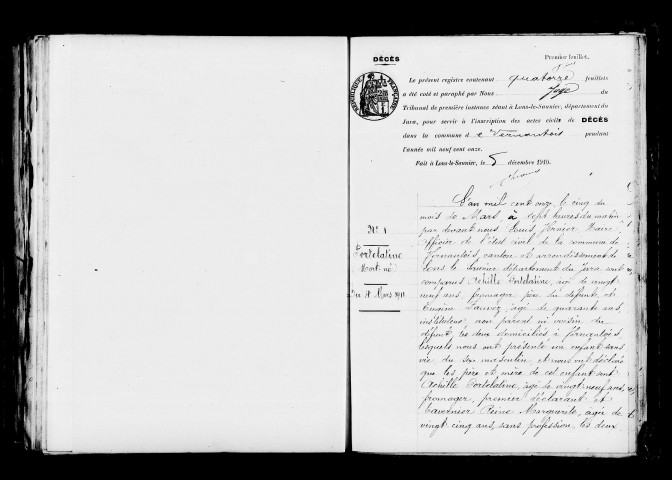 DÉCÈS
Premier feuillet.
Le présent registre contenant quatorze feuillets
a été coté et paraphé par Nous Juge du
Tribunal de première instance séant à Lons-le-Saunier, département du
Jura, pour servir à l'inscription des actes civils de DÉCÈS
dans la commune d e Vernantois pendant
l'année mil neuf cent onze.
Fait à Lons-le-Saunier, le 5 décembre 1910.
RÉPUBLIQUE FRANÇAISE
N° 1
Mort né
4 Mars 1911
L'an mil cent onze, le cinq du
mois de Mars, à sept heures du matin
par devant nous Maire
Officier de l'état civil de la commune de
Vernantois, canton et arrondissement de
Lons le Saunier département du Jura sont
comparus Achille agé de vingt
neuf ans, fromager, père du défunt, et
Eugène agé de quarante ans,
instituteur, non parent ni voisin du
défunt, les deux domiciliés à Vernantois,
lesquels nous ont présenté un enfant sans
vie du sexe masculin, et nous ont déclaré
que les père et mère de cet enfant sont
Achille agé de vingt neuf ans,
fromager, premier déclarant et
Tavernier Reine Marguerite, agée de
vingt cinq ans, sans profession, les deux